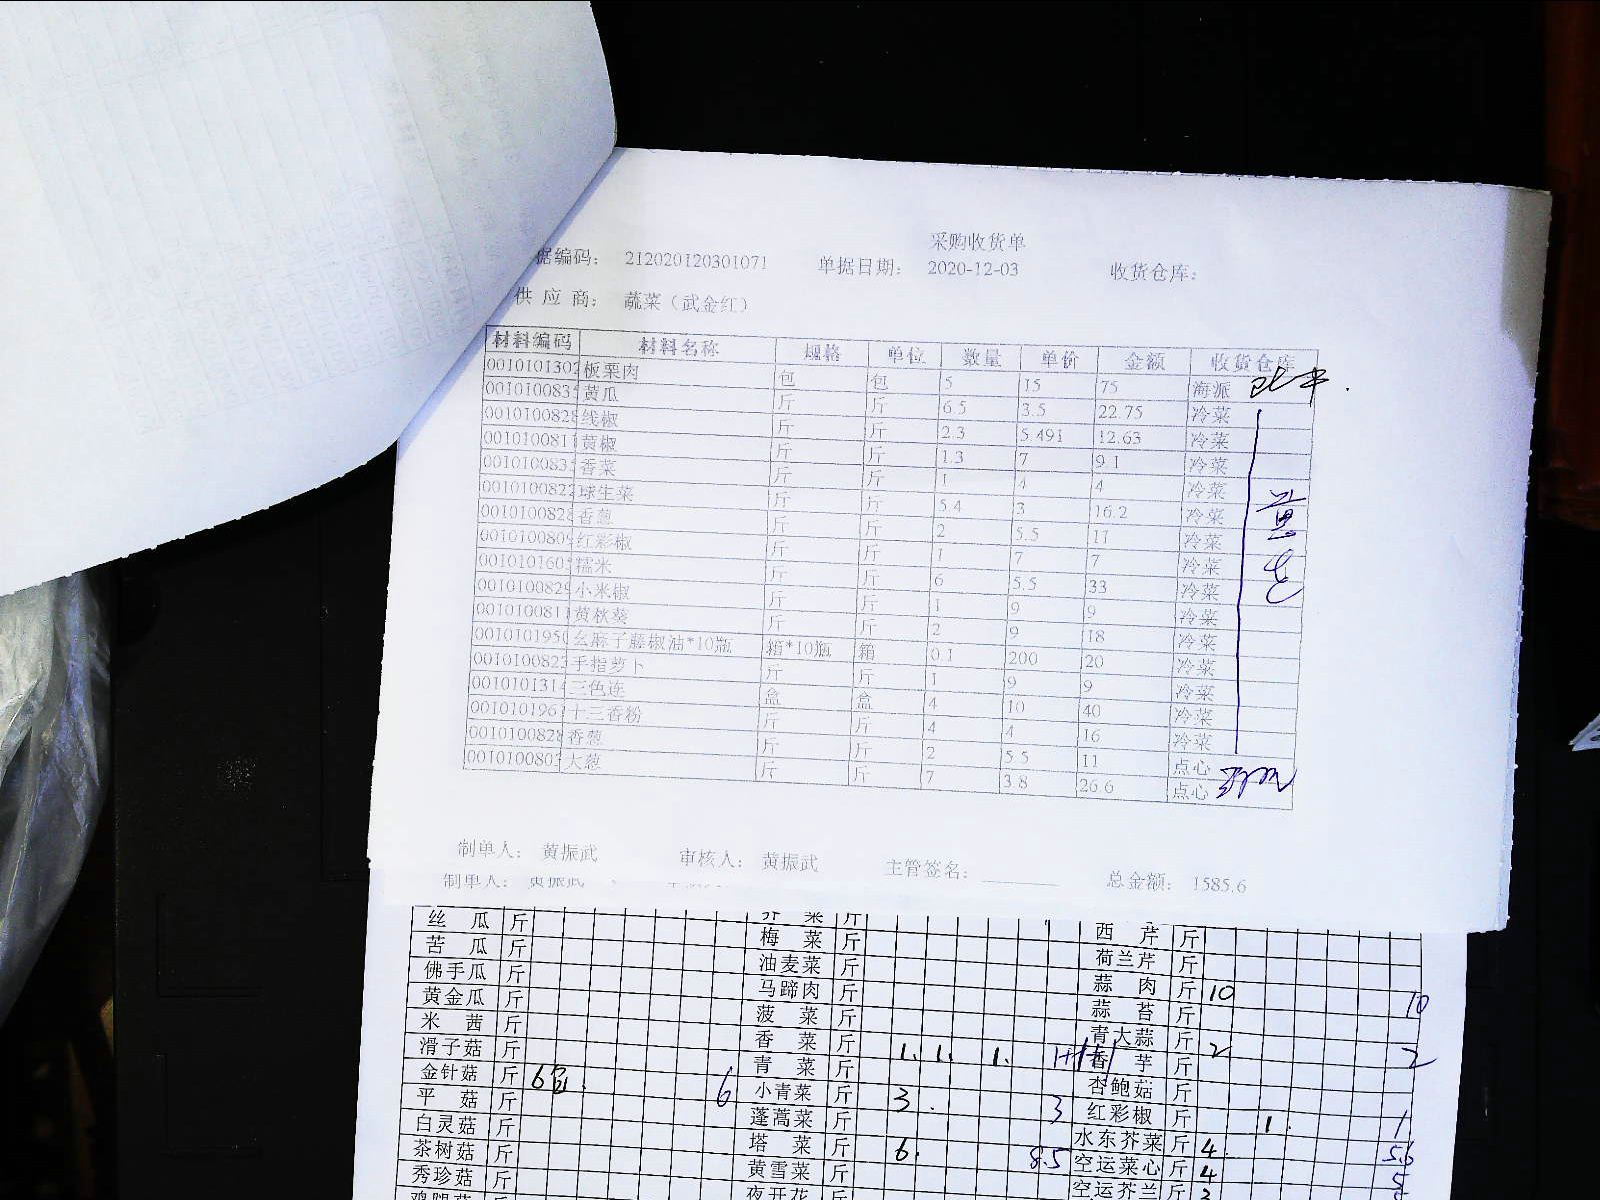 采购收货单
据编码： 212020120301071 单据日期： 2020-12-03 收货仓库：
供 应 商： 蔬菜（武金红）
材料编码 材料名称 规格 单位 数量 单价 金额 收货仓库
0010101302 板栗肉 包 包 5 15 75 海派
001010083 黄瓜 斤 斤 6.5 3.5 22.75 冷菜
001010082 线椒 斤 斤 2.3 5.491 12.63 冷菜
001010081 黄椒 斤 斤 1.3 7 9.1 冷菜
001010083 香菜 斤 斤 1 4 4 冷菜
001010082 球生菜 斤 斤 5.4 3 16.2 冷菜
001010082 香葱 斤 斤 2 5.5 11 冷菜
001010080 红彩椒 斤 斤 1 7 7 冷菜
001010160 糯米 斤 斤 6 5.5 33 冷菜
001010082 小米椒 斤 斤 1 9 9 冷菜
001010081 黄秋葵 斤 斤 2 9 18 冷菜
001010195 幺麻子藤椒油*10瓶 箱*10瓶 箱 0.1 200 20 冷菜
001010082 手指萝卜 斤 斤 1 9 9 冷菜
001010131 三色连 盒 盒 4 10 40 冷菜
001010196 十三香粉 斤 斤 4 4 16 冷菜
001010082 香葱 斤 斤 2 5.5 11 点心
001010080 大葱 斤 斤 7 3.8 26.6 点心
制单人： 黄振武 审核人： 黄振武 主管签名： 总金额： 1585.6
制单人： 黄振武
丝 瓜 斤 芥 菜 斤 西 芹 斤
苦 瓜 斤 梅 菜 斤 荷兰芹 斤
佛手瓜 斤 油麦菜 斤 蒜 肉 斤 10 10
黄金瓜 斤 马蹄肉 斤 蒜 苔 斤
米 茜 斤 菠 菜 斤 青大蒜 斤 2 2
滑子菇 斤 香 菜 斤 1. 1. 1. 香 芋 斤
金针菇 斤 6包. 6 青 菜 斤 杏鲍菇 斤
平 菇 斤 小青菜 斤 3. 3 红彩椒 斤 1. 1
白灵菇 斤 蓬蒿菜 斤 水东芥菜 斤 4.
茶树菇 斤 塔 菜 斤 6. 8.5 空运菜心 斤 4
秀珍菇 斤 黄雪菜 斤 空运芥兰 斤